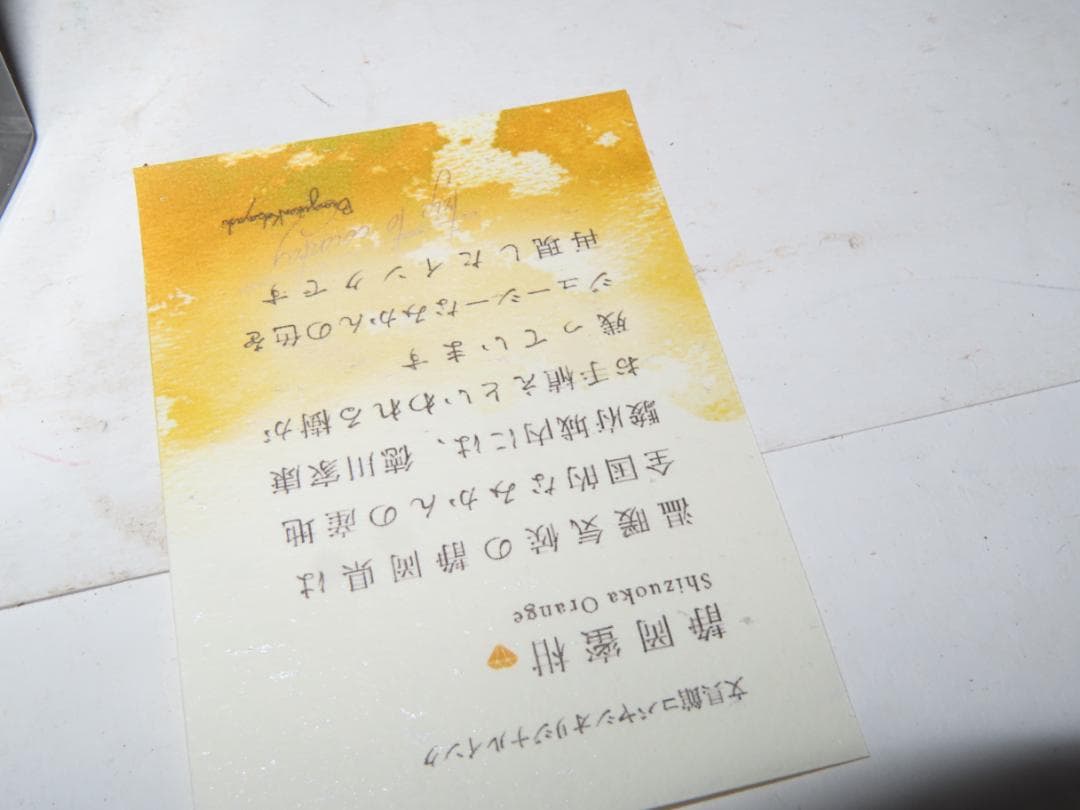 文具館コバヤシオリジナルインク
静岡蜜柑
Shizuoka Orange
温暖気候の静岡県は
全国的なみかんの産地
駿府城内には、徳川家康
お手植えといわれる樹が
残っています
ジューシーなみかんの色を
再現したインクです
Bungukan Kobayashi